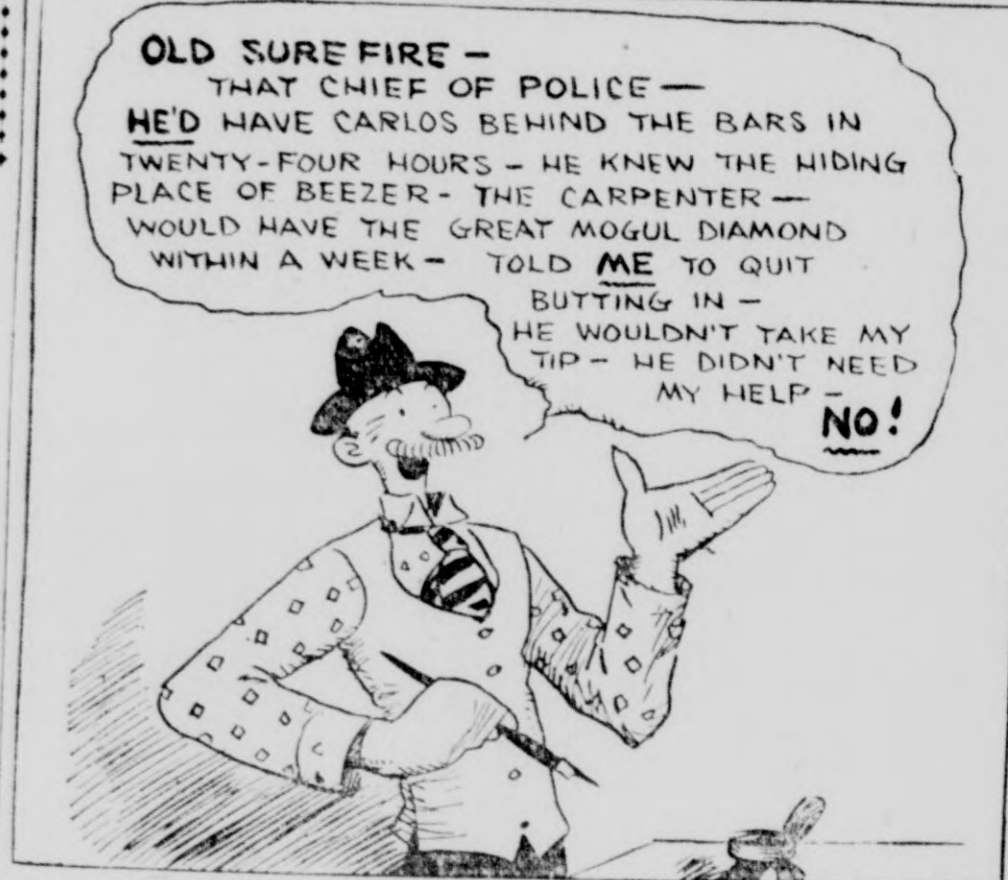 OLD SURE FIRE -
THAT CHIEF OF POLICE —
HE'D HAVE CARLOS BEHIND THE BARS IN
TWENTY-FOUR HOURS - HE KNEW THE HIDING
PLACE OF BEEZER - THE CARPENTER —
WOULD HAVE THE GREAT MOGUL DIAMOND
WITHIN A WEEK - TOLD ME TO QUIT
BUTTING IN -
HE WOULDN'T TAKE MY
TIP - HE DIDN'T NEED
MY HELP -
NO!